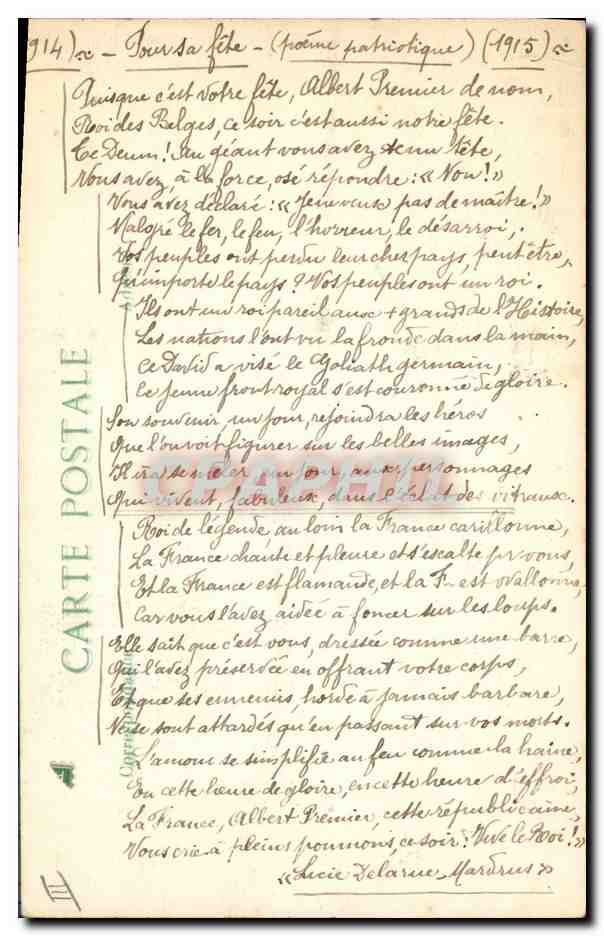 914) – Pour sa fête – (poème patriotique) (1915)
Puisque c'est votre fête, Albert Premier de nom,
Roi des Belges, ce soir c'est aussi notre fête.
Te Deum! Au géant vous avez tenu tête,
Vous avez, à la force, osé répondre: «Non!»
Vous avez déclaré: «Je ne veux pas de maître!»
Malgré le fer, le feu, l'horreur, le désarroi,
Vos peuples ont perdu leur cher pays, peut être,
Qu'importe le pays? Vos peuples ont un roi.
Ils ont un roi pareil aux + grands de l'Histoire,
Les nations l'ont vu la fronde dans la main,
Ce David a visé le Goliath germain,
Ce jeune front royal s'est couronné de gloire.
Son souvenir, un jour, rejoindra les héros
Que l'on voit figurer sur les belles images,
Il ira se mêler, un jour, aux personnages
Qui vivent, fabuleux, dans l'éclat des vitraux.
Roi de légende, au loin la France carillonne,
La France chante et pleure et s'exalte pr vous,
Et la France est flamande, et la F– est wallonne,
Car vous l'avez aidée à foncer sur les loups.
Elle sait que c'est vous, dressée comme une barre,
Qui l'avez préservée en offrant votre corps,
Et que ses ennemis, horde à jamais barbare,
Ne se sont attardés qu'en passant sur vos morts.
L'amour se simplifie au feu comme la haine,
En cette heure de gloire, en cette heure d'effroi,
La France, Albert Premier, cette républicaine,
Vous crie à pleins poumons, ce soir: Vive le Roi!»
«Lucie Delarue-Mardrus»
CARTE POSTALE
Correspondance
CPAPHIL
II